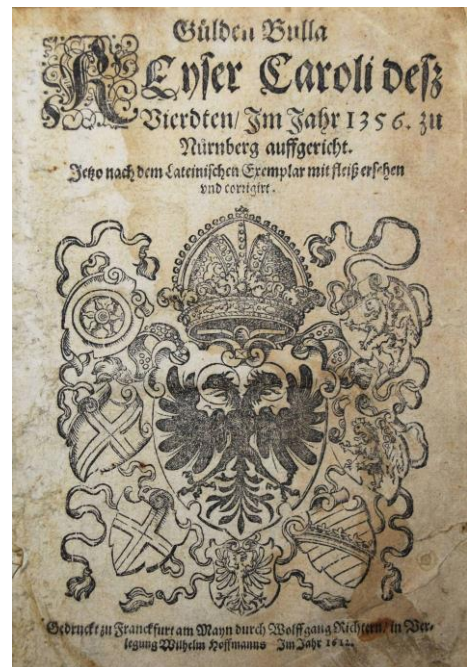 Gülden Bulla
Keyser Caroli deß
Vierdten/ Im Jahr 1356. zu
Nürnberg auffgericht.
Jetzo nach dem Lateinischen Exemplar mit fleiß ersehen
vnd corrigirt.
Gedruckt zu Franckfurt am Mayn durch Wolffgang Richtern/ in Ver-
legung Wilhelm Hoffmanns Im Jahr 1612.